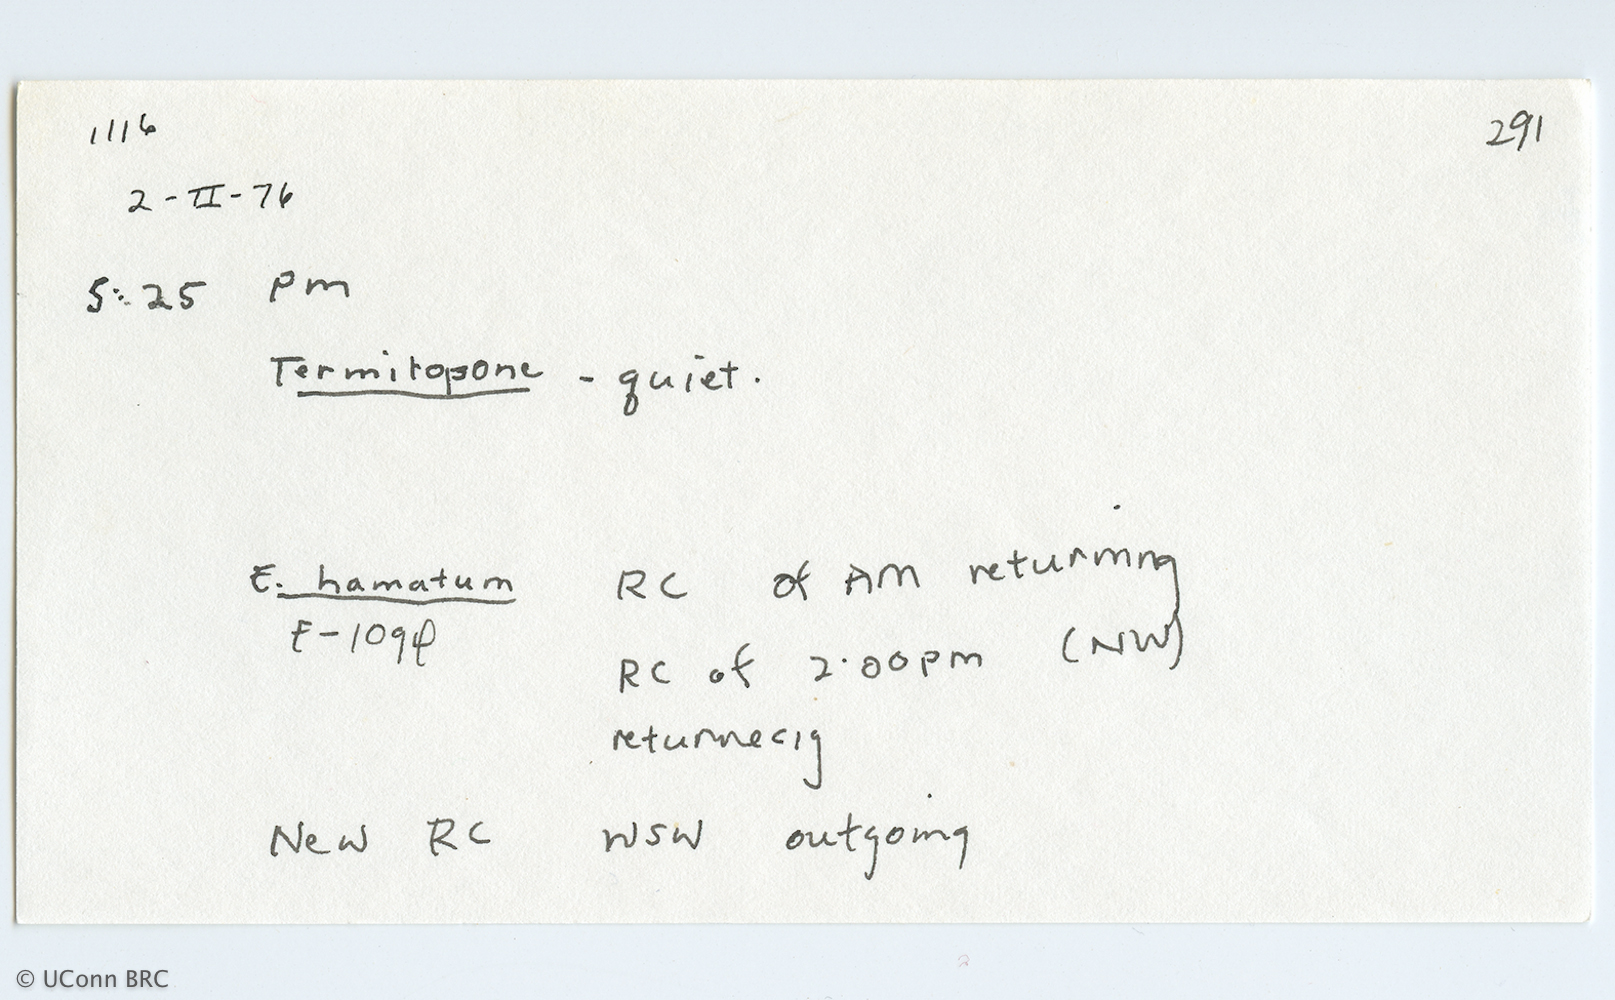 1116
291
2-II-76
5:25 pm
Termitopone - quiet.
E. hamatum RC of AM returning
E-109
RC of 2.00pm (NW)
returning
New RC WSW outgoing
© UConn BRC